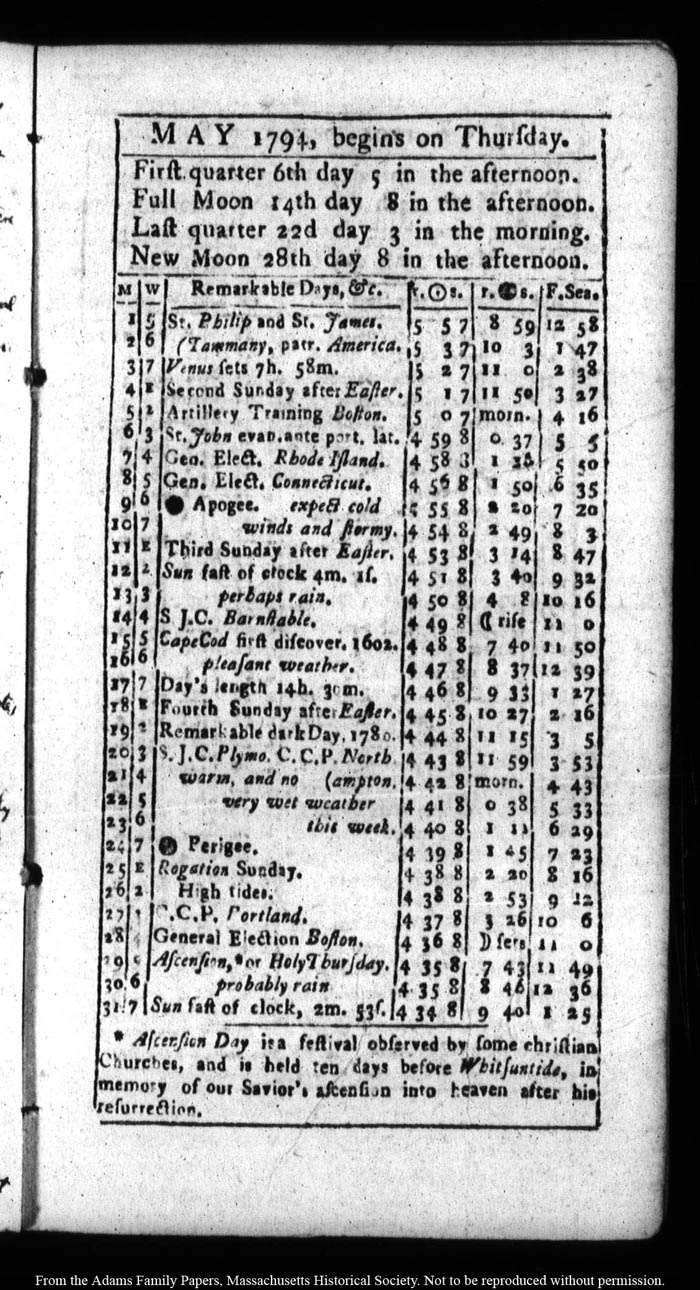 MAY 1794, begins on Thurſday.
Firſt quarter 6th day 5 in the afternoon.
Full Moon 14th day 8 in the afternoon.
Laſt quarter 22d day 3 in the morning.
New Moon 28th day 8 in the afternoon.
M W Remarkable Days, &c. r. ☉ s. r. ☾ s. F. Sea.
1 5 St. Philip and St. James. 5 5 7 8 59 12 58
2 6 (Tammany, patr. America. 5 3 7 10 3 1 47
3 7 Venus ſets 7h. 58m. 5 2 7 11 0 2 38
4 E Second Sunday after Eaſter. 5 1 7 11 50 3 27
5 2 Artillery Training Boſton. 5 0 7 morn. 4 16
6 3 St. John evan. ante port. lat. 4 59 8 0 37 5 5
7 4 Gen. Elect. Rhode Iſland. 4 58 8 1 5 50
8 5 Gen. Elect. Connecticut. 4 56 8 1 50 6 35
9 6 ● Apogee. expect cold 55 8 2 20 7 20
10 7 winds and ſtormy. 4 54 8 2 49 8 3
11 E Third Sunday after Eaſter. 4 53 8 3 14 8 47
12 2 Sun faſt of clock 4m. 1ſ. 4 51 8 3 40 9 32
13 3 perhaps rain. 4 50 8 4 8 10 16
14 4 S J.C. Barnſtable. 4 49 8 ☾ riſe 11 0
15 5 Cape Cod firſt diſcover. 1602. 4 48 8 7 40 11 50
16 6 pleaſant weather. 4 47 8 8 37 12 39
17 7 Day's length 14h. 30m. 4 46 8 9 33 1 27
18 E Fourth Sunday after Eaſter. 4 45 8 10 27 2 16
19 2 Remarkable dark Day, 1780. 4 44 8 11 15 3 5
20 3 S.J.C. Plymo. C.C.P. North 4 43 8 11 59 3 53
21 4 warm, and no (ampton. 4 42 8 morn. 4 43
22 5 very wet weather 4 41 8 0 38 5 33
23 6 this week. 4 40 8 1 11 6 29
24 7 Perigee. 4 39 8 1 45 7 23
25 E Rogation Sunday. 4 38 8 2 20 8 16
26 2 High tides. 4 38 8 2 53 9 12
27 C.C.P. Portland. 4 37 8 3 26 10 6
28 General Election Boſton. 4 36 8 ☽ ſets 11 0
29 Aſcenſion,* or Holy Thurſday. 4 35 8 7 43 11 49
30 6 probably rain 4 35 8 8 46 12 36
31 7 Sun faſt of clock, 2m. 53ſ. 4 34 8 9 40 1 25
* Aſcenſion Day is a feſtival obſerved by ſome chriſtian
Churches, and is held ten days before Whitſuntide, in
memory of our Savior's aſcenſion into heaven after his
reſurrection.
From the Adams Family Papers, Massachusetts Historical Society. Not to be reproduced without permission.